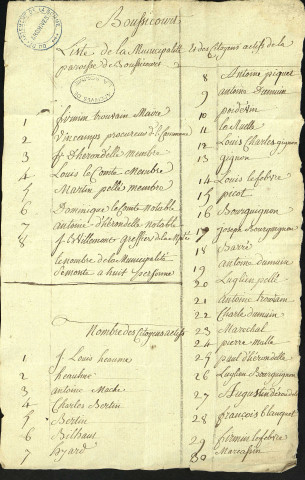 Boussicourt
Liste de la Municipalité et des Citoyens actifs de la
paroisse de Boussicourt
1 firmin trouvain Maire
2 Vincamps procureur de la Commune
3 fs Dherondelle membre
4 Louis le Comte Membre
5 Martin pelle membre
6 Dominique le Comte Notable
7 antoine d'hérondelle notable
8 Greffier de la
le nombre de la Municipalité
Se monte a huit personne
Nombre des Citoyens actifs
1 f Louis heaume
2 heaulme
3 antoine Mache
4 Charles Bertin
5 Bertin
6 Bilhaut
7 hyard
8 Antoine piquet
9 antoine Damain
10
11 la Ruelle
12 Louis Charles gignon
13 gignon
14 Louis lefebvre
15 picot
16 Bourguignon
17 Joseph Bourguignon
18 Barré
19 antoine damain
20 Luglien pelle
21 antoine trouvain
22 Charle damain
23 Marechal
24 pierre Malle
25 paul d'hérondelle
26 Luglien Bourguignon
27 Augustin
28 françois blanquet
29 firmin lefebvre
30 Marcassin